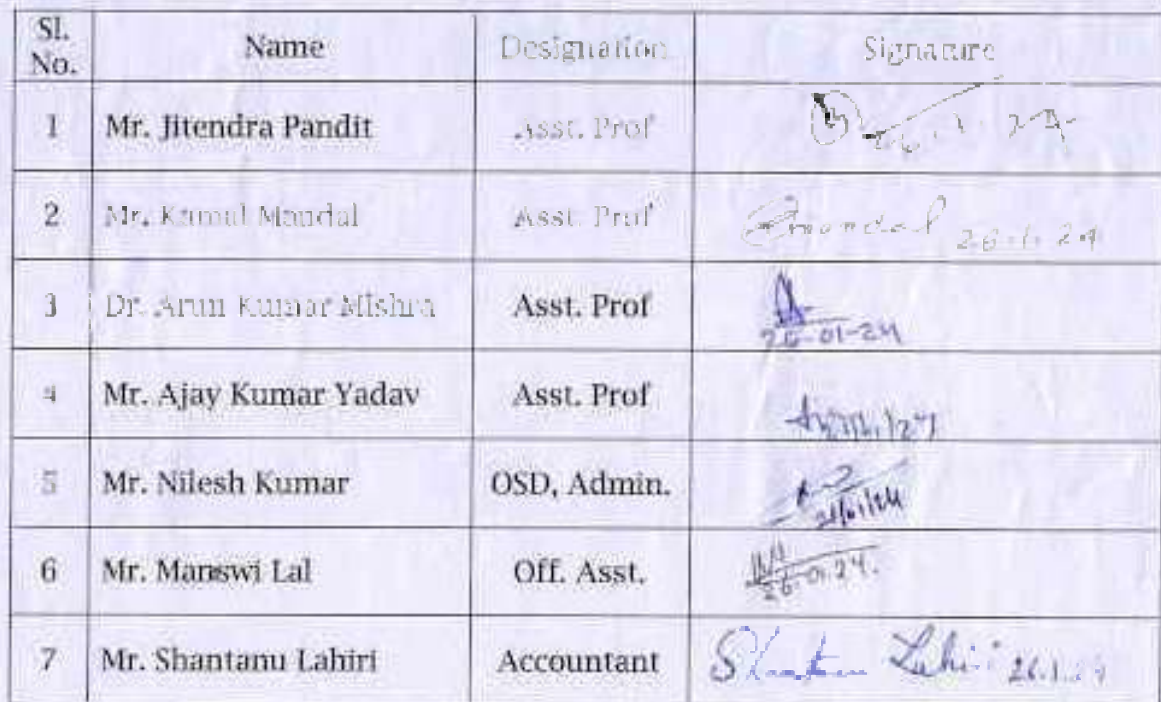 Sl. No. Name Designation Signature
1 Mr. Jitendra Pandit Asst. Prof 26.1.24
2 Mr. Kamal Mandal Asst. Prof Kmandal 26.1.24
3 Dr. Arun Kumar Mishra Asst. Prof 26-01-24
4 Mr. Ajay Kumar Yadav Asst. Prof
5 Mr. Nilesh Kumar OSD, Admin.
6 Mr. Manswi Lal Off. Asst. 26-01.24.
7 Mr. Shantanu Lahiri Accountant Shantanu Lahiri 26.1.24